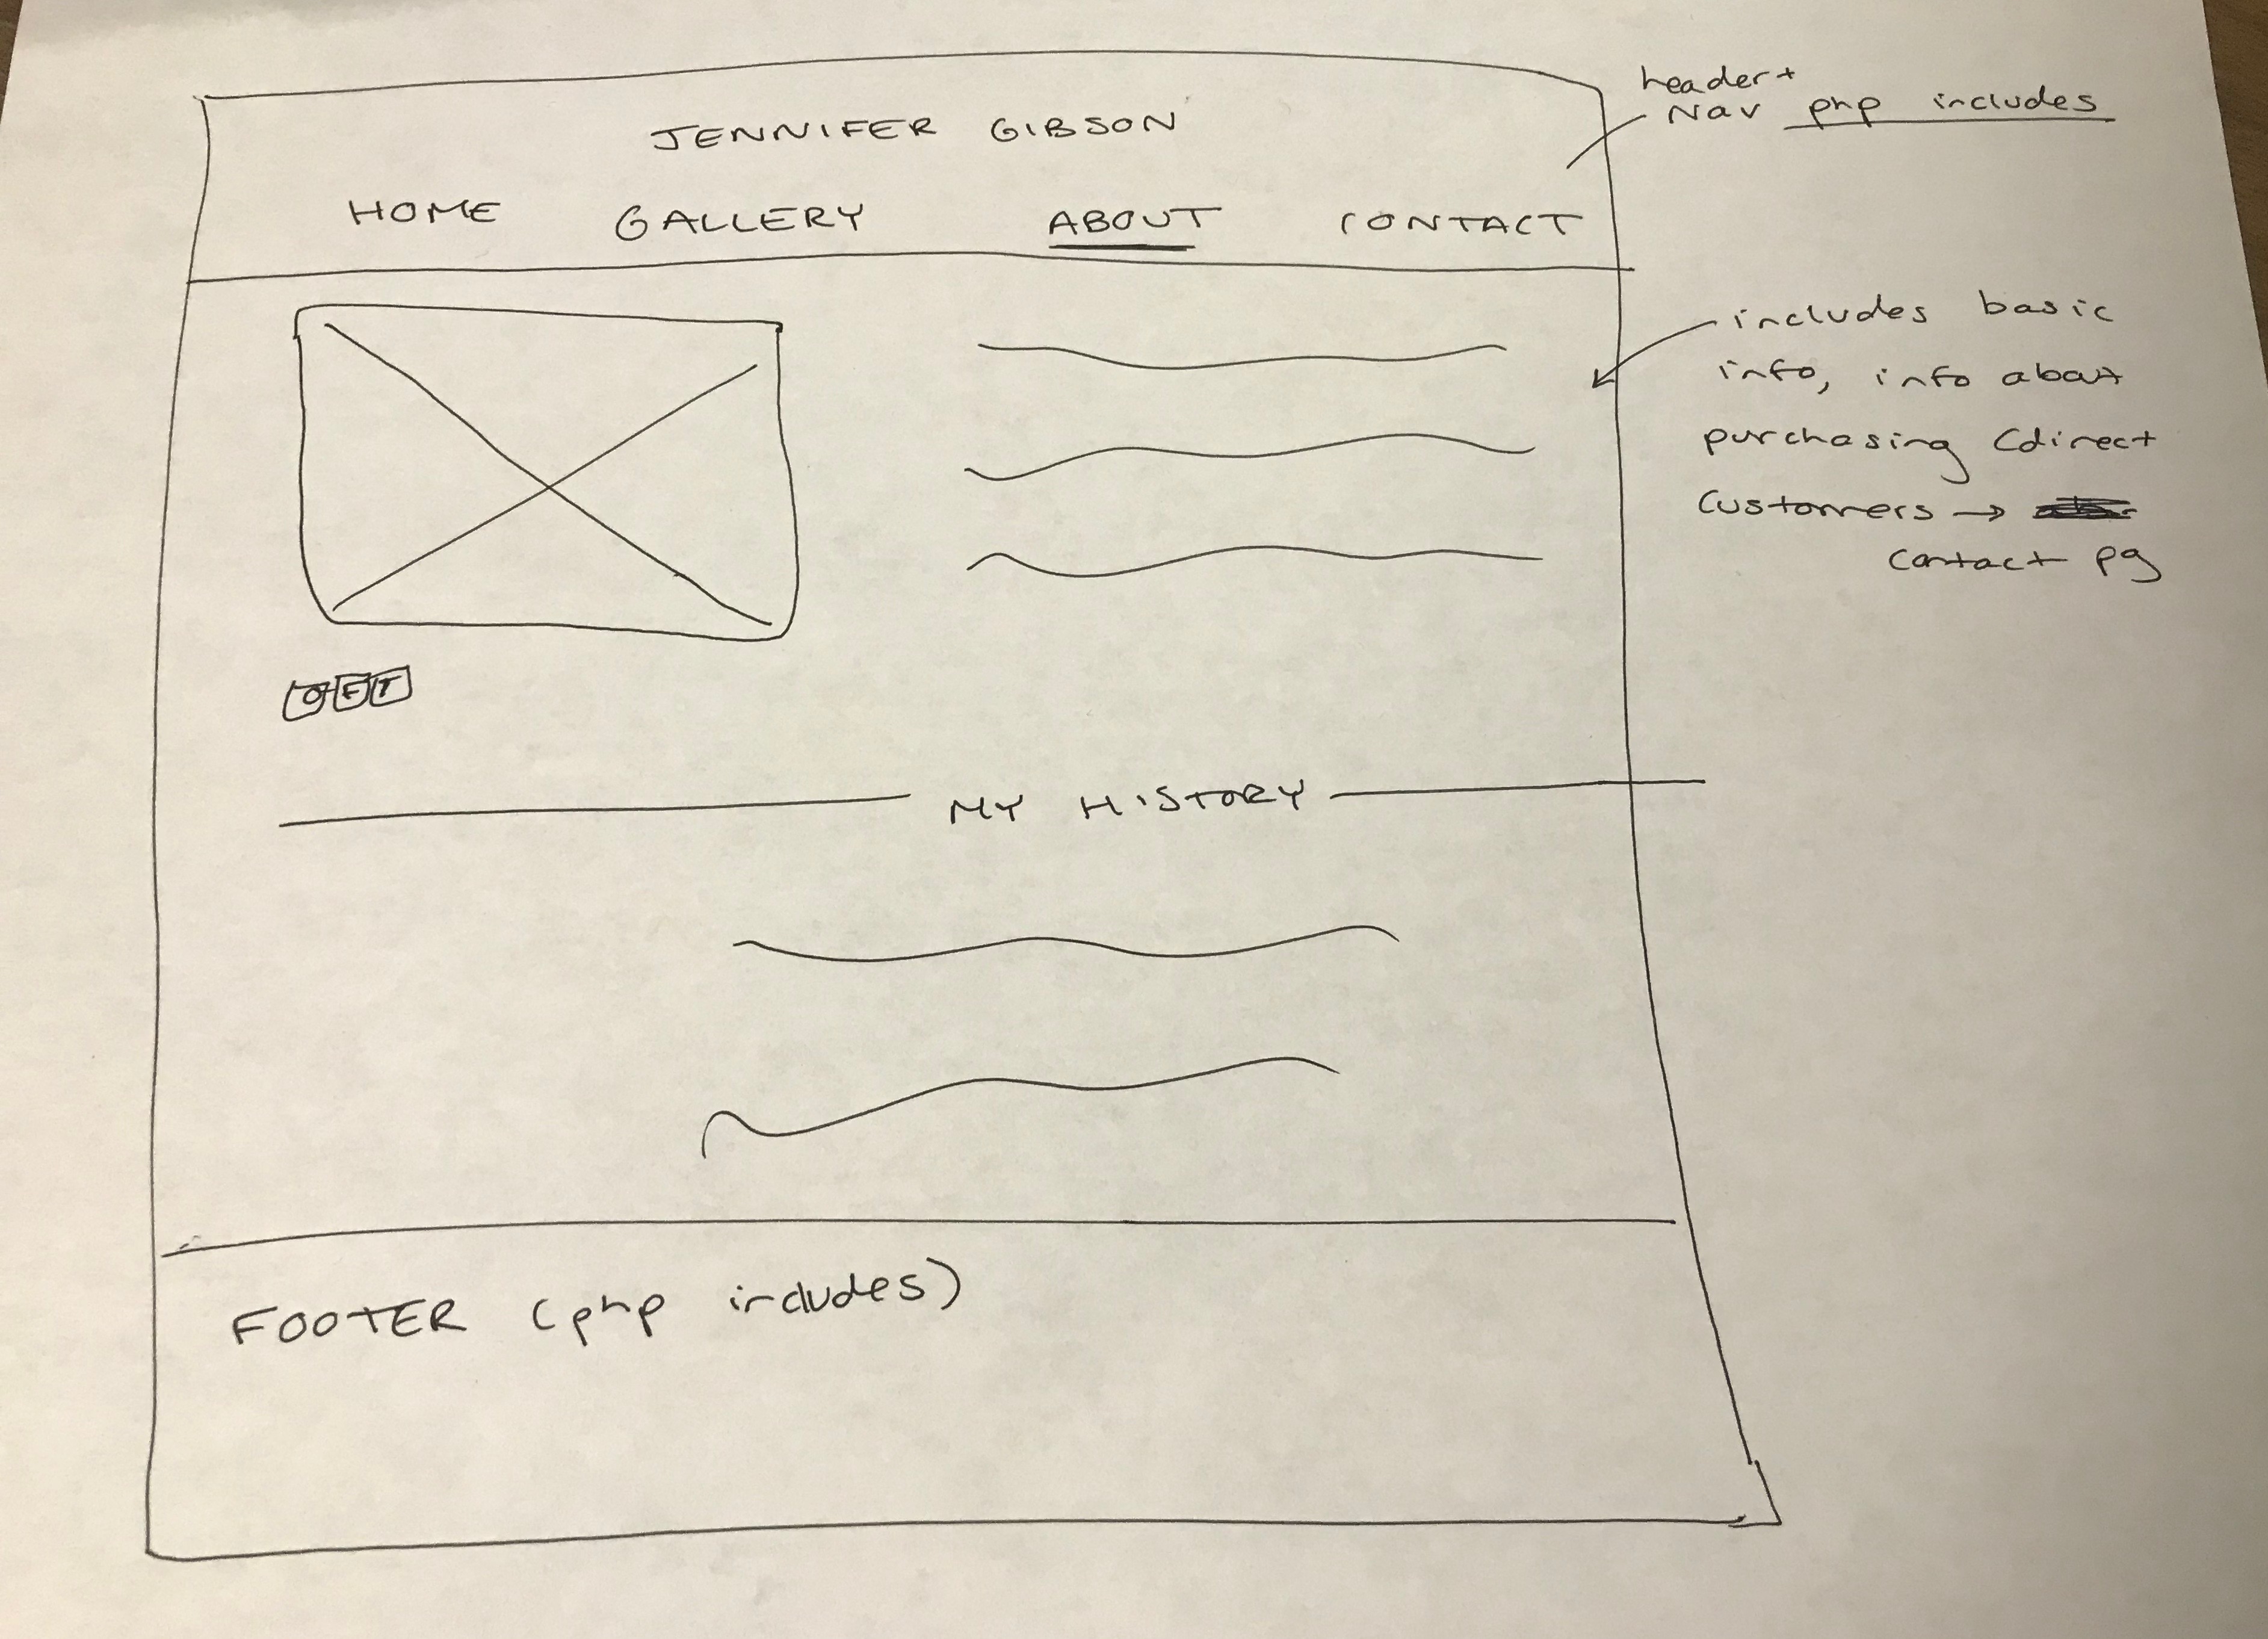 JENNIFER GIBSON
header+
Nav php includes
HOME GALLERY ABOUT CONTACT
includes basic
info, info about
purchasing (direct
customers →
contact pg
F T
MY HISTORY
FOOTER (php includes)